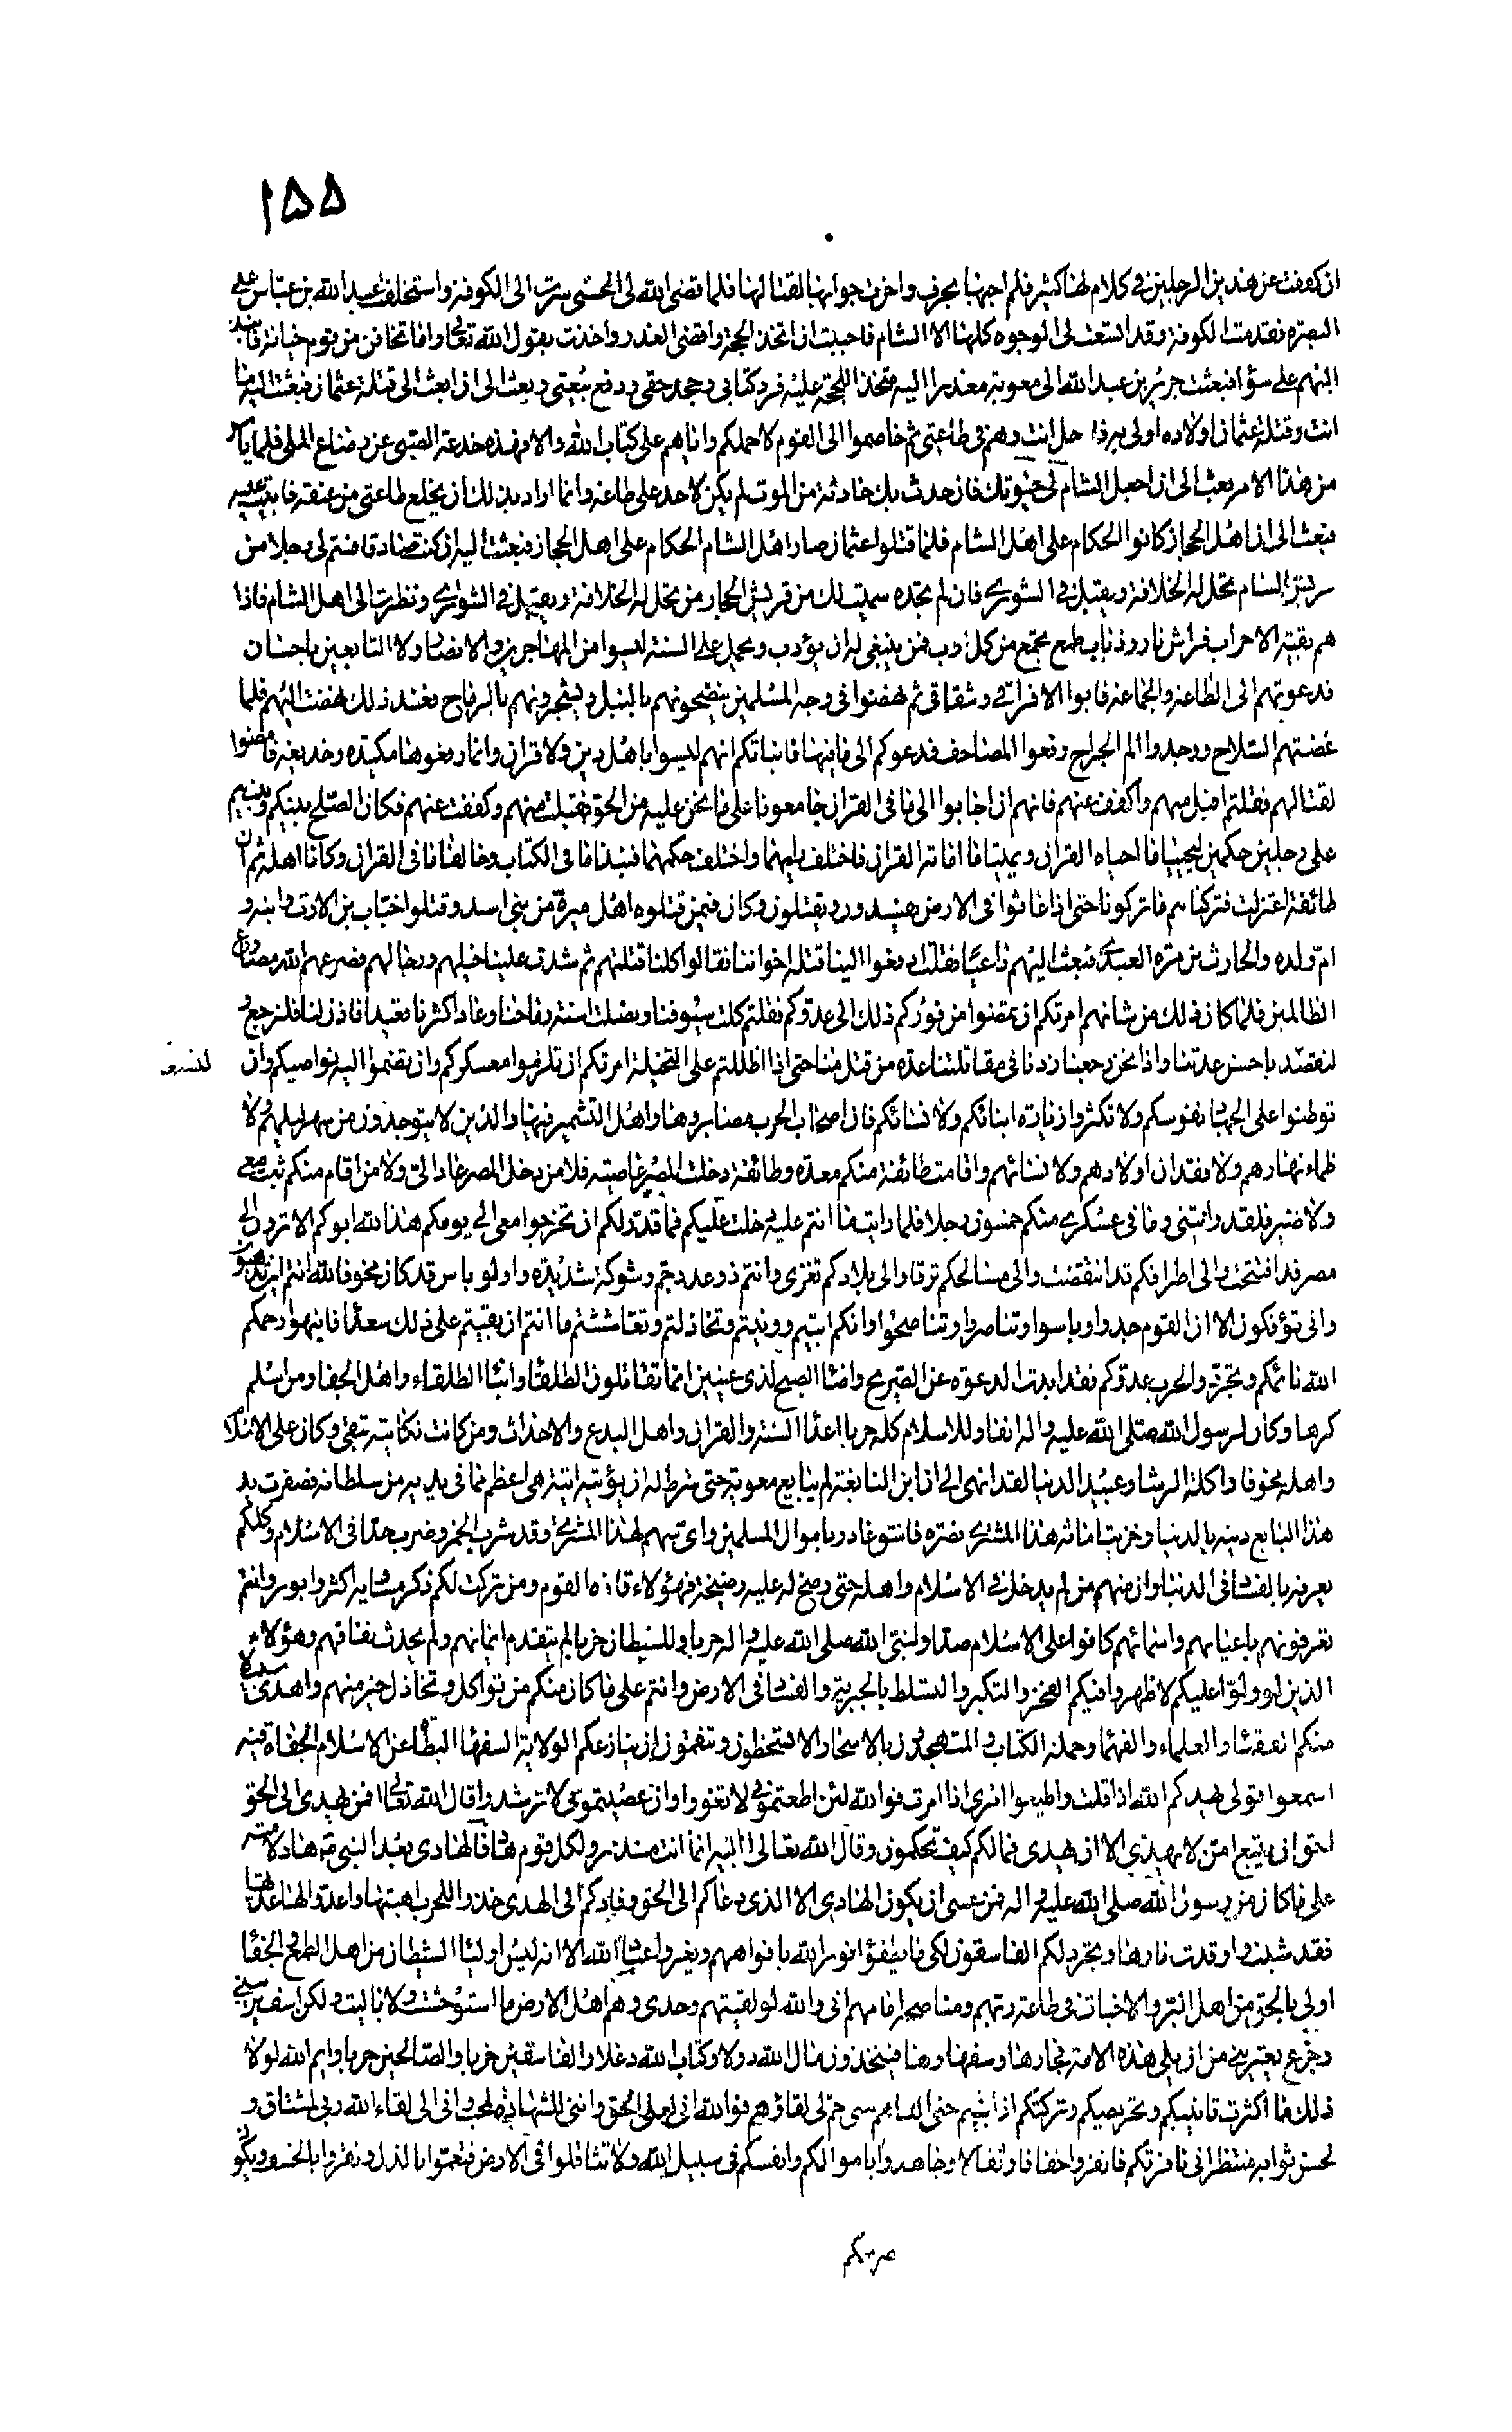 ١٥٥
ان كففت عن هذين الرجلين في كلام لهما كثير فلم اجبهما بحرف واخرت جوابهما لقتالهما فلما قضى الله لي الحسنى سرت الى الكوفة واستخلفت عبد الله بن عباس على
البصرة فقدمت الكوفة وقد اتسعت لي الوجوه كلها الا الشام فاحببت ان اتخذ الحجة واقضي العذر واخذت بقول الله تعالى واما تخافن من قوم خيانة فانبذ
اليهم على سواء فبعثت جرير بن عبد الله الى معوية معذرا اليه متخذا للحجة عليه فرد كتابي وجحد حقي ودفع بيعتي وبعث الى ان ابعث الى قتلة عثمان فبعثت اليه ما
انت وقتلة عثمان اولاده اولى به ادخل انت وهم في طاعتي ثم خاصموا الى القوم لاحملكم واياهم على كتاب الله والا فهذه خدعة الصبي عن رضاع الملي فلما يئس
من هذا الامر بعث الى ان اجعل الشام لي حيوتك فان حدث بك حادثة من الموت لم يكن لاحد على طاعة وانما اراد بذلك ان يخلع طاعتي من عنقه فابيت عليه
فبعث الى ان اهل الحجاز كانوا الحكام على اهل الشام فلما قتلوا عثمان صار اهل الشام الحكام على اهل الحجاز فبعثت اليه ان كنت صادقا فسم لي رجلا من
قريش الشام تحل له الخلافة ويقبل في الشورى فان لم تجده سميت لك من قريش الحجاز من تحل له الخلافة ويقبل في الشورى ونظرت الى اهل الشام فاذا
هم بقية الاحزاب فراش نار وذباب طمع تجمع من كل اوب فمن ينبغي له ان يؤدب ويحمل على السنة ليسوا من المهاجرين والانصار ولا التابعين باحسان
فدعوتهم الى الطاعة والجماعة فابوا الا فراقي وشقاقي ثم نهضوا في وجه المسلمين ينضحونهم بالنبل ويشجرونهم بالرماح فعند ذلك نهضت اليهم فلما
عضتهم السلاح ووجدوا الم الجراح رفعوا المصاحف فدعوكم الى ما فيها فانباتكم انهم ليسوا باهل دين ولا قران وانما رفعوها مكيدة وخديعة فامضوا
لقتالهم فقلتم اقبل منهم واكفف عنهم فانهم ان اجابوا الى ما في القران جامعونا على ما نحن عليه من الحق فقبلت منهم وكففت عنهم فكان الصلح بينكم وبينهم
على رجلين حكمين ليحييا ما احياه القران ويميتا ما اماته القران فاختلف رايهما واختلف حكمهما فنبذا ما في الكتاب وخالفا ما في القران وكانا اهله ثم ان
طائفة اعتزلت فتركناهم ما تركونا حتى اذا عاثوا في الارض يفسدون ويقتلون وكان فيمن قتلوه اهل ميرة من بني اسد وقتلوا خباب بن الارت وابنه و
ام ولده والحارث بن مرة العبدي فبعثت اليهم داعيا فقلت ادفعوا الينا قتلة اخواننا فقالوا كلنا قتلتهم ثم شدت علينا خيلهم ورجالهم فصرعهم الله مصارع
الظالمين فلما كان ذلك من شانهم امرتكم ان تمضوا من فوركم ذلك الى عدوكم فقلتم كلت سيوفنا ونصلت اسنة رماحنا وعاد اكثرنا قصيدا فاذن لنا فلنرجع و
لنقصد باحسن عدتنا واذا نحن رجعنا زدنا في مقاتلتنا عدة من قتل منا حتى اذا اظللتم على النخيلة امرتكم ان تلزموا معسكركم وان تضموا اليه نواصيكم وان
توطنوا على الجهاد نفوسكم ولا تكثروا زيارة ابنائكم ولا نسائكم فان اصحاب الحرب مصابروها واهل التشمير فيها والذين لا يتوجدون من سهر ليلهم ولا
ظماء نهارهم ولا فقدان اولادهم ولا نسائهم واقامت طائفة منكم معدة وطائفة دخلت المصر عاصية فلا من دخل المصر عاد الى ولا من اقام منكم ثبت معي
ولا صبر فلقد رايتني وما في عسكري منكم خمسون رجلا فلما رايت ما انتم عليه دخلت عليكم فما قدر لكم ان تخرجوا معي الى يومكم هذا لله ابوكم الا ترون الى
مصر قد افتتحت والى اطرافكم قد انتقضت والى مسالحكم ترقا والى بلادكم تغزى وانتم ذو عدد جم وشوكة شديدة واولو باس قد كان مخوفا لله انتم اين تذهبون
وانى تؤفكون الا ان القوم جدوا وباسوا وتناصروا وتناصحوا وانكم ابيتم وونيتم وتخاذلتم وتغاششتم ما انتم ان بقيتم على ذلك سعداء فانبهوا رحمكم
الله نائمكم وتجردوا لحرب عدوكم فقد ابدت الدعوة عن الصريح واضاء الصبح لذي عينين انما تقاتلون الطلقاء وابناء الطلقاء واهل الجفاء ومن اسلم
كرها وكان لرسول الله صلى الله عليه واله انفا وللاسلام كله حربا اعداء السنة والقران واهل البدع والاحداث ومن كانت نكايته تتقى وكان على الاسلام
واهله مخوفا واكلة الرشا وعبيد الدنيا لقد انهى الى ان ابن النابغة لم يبايع معوية حتى شرط له ان يؤتيه اتية هي اعظم مما في يديه من سلطانه فصفرت يد
هذا البايع دينه بالدنيا وخزيت امانة هذا المشتري نصرة فاسق غادر باموال المسلمين واي سهم لهذا المشترى وقد شرب الخمر وضرب حدا في الاسلام وكلكم
يعرفه بالفساد في الدنيا وان منهم من لم يدخل في الاسلام واهله حتى رضخ له عليه رضيخة فهؤلاء قادة القوم ومن تركت لكم ذكر مساويه اكثر وابور وانتم
تعرفونهم باعيانهم واسمائهم كانوا على الاسلام ضدا ولنبي الله صلى الله عليه واله حربا وللشيطان حزبا لم يتقدم ايمانهم ولم يحدث نفاقهم وهؤلاء
الذين لو ولوا عليكم لاظهروا فيكم الفخر والتكبر والتسلط بالجبرية والفساد في الارض وانتم على ما كان منكم من تواكل وتخاذل خير منهم واهدى سبيلا
منكم الفقهاء والعلماء والفهماء وحملة الكتاب والمتهجدون بالاسحار الا تسخطون وتنقمون ان ينازعكم الولاية السفهاء البطاء عن الاسلام الجفاة فيه
اسمعوا قولي يهدكم الله اذا قلت واطيعوا امري اذا امرت فوالله لئن اطعتموني لا تغووا وان عصيتموني لا ترشدوا قال الله تعالى افمن يهدي الى الحق
احق ان يتبع امن لا يهدي الا ان يهدى فما لكم كيف تحكمون وقال الله تعالى لنبيه انما انت منذر ولكل قوم هاد فالهادي بعد النبي ص هاد لامته
على ما كان من رسول الله صلى الله عليه واله فمن عسى ان يكون الهادي الا الذي دعاكم الى الحق وقادكم الى الهدى خذوا للحرب اهبتها واعدوا لها عدتها
فقد شبت واوقدت نارها وتجرد لكم الفاسقون لكي ما يطفؤا نور الله بافواههم ويغروا عباد الله الا انه ليس اولياء الشيطان من اهل الطمع والجفاء
اولى بالحق من اهل البر والاخبات في طاعة ربهم ومناصحة امامهم اني والله لو لقيتهم وحدي وهم اهل الارض ما استوحشت ولا باليت ولكن اسف يريبني
وجزع يعتريني من ان يلي هذه الامة فجارها وسفهاؤها فيتخذون مال الله دولا وكتاب الله دغلا والفاسقين حزبا والصالحين حربا وايم الله لولا
ذلك ما اكثرت تانيبكم وتحريصكم وتركتكم اذا ابيتم حتى القاهم متى حم لي لقاؤهم فوالله اني لعلى الحق وانني للشهادة لمحب واني الى لقاء الله ربي لمشتاق و
لحسن ثوابه منتظر اني نافر بكم فانفروا خفافا وثقالا وجاهدوا باموالكم وانفسكم في سبيل الله ولا تثاقلوا في الارض فتعموا بالذل وتقروا بالخسف ويكون